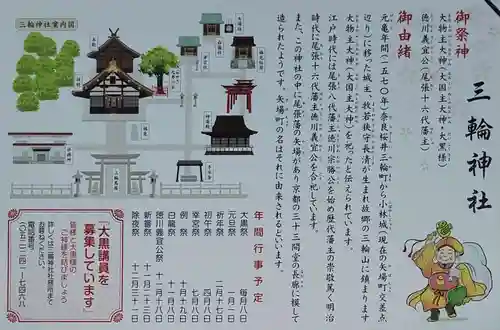 三輪神社
御祭神
大物主大神(大国主大神・大黒様)
徳川義宜公(尾張十六代藩主)
御由緒
元亀年間(一五七〇年)奈良桜井三輪町から小林城(現在の矢場町交差点
辺り)に移った城主、牧若狭守長清が生まれ故郷の三輪山に鎮まります
大物主大神(大国主大神)を祀ったと伝えられています。
江戸時代には尾張八代藩主徳川宗勝公を始め歴代藩主の崇敬篤く明治
時代に尾張十六代藩主徳川義宜公を合祀しています。
また、この神社の中に尾張藩の矢場があり京都の三十三間堂の長廊に模して
造られたようです。矢場町の名はそれに由来されるといいます。
年間行事予定
大黒祭 毎月八日
元旦祭 一月一日
祈年祭 二月十七日
初午祭
幸宮祭 四月八日
例祭 十月十七日
白龍祭 十月十九日
徳川義宜公祭 十一月十八日
新嘗祭 十一月二十三日
除夜祭 十二月三十一日
三輪神社案内図
本殿
社務所
三輪神社
「大黒講員を
募集しています」
皆様と大黒様の
ご神縁を結びましょう
詳しくは三輪神社社務所まで
お尋ねください。
電話番号
〇五二-二四一-七四六八